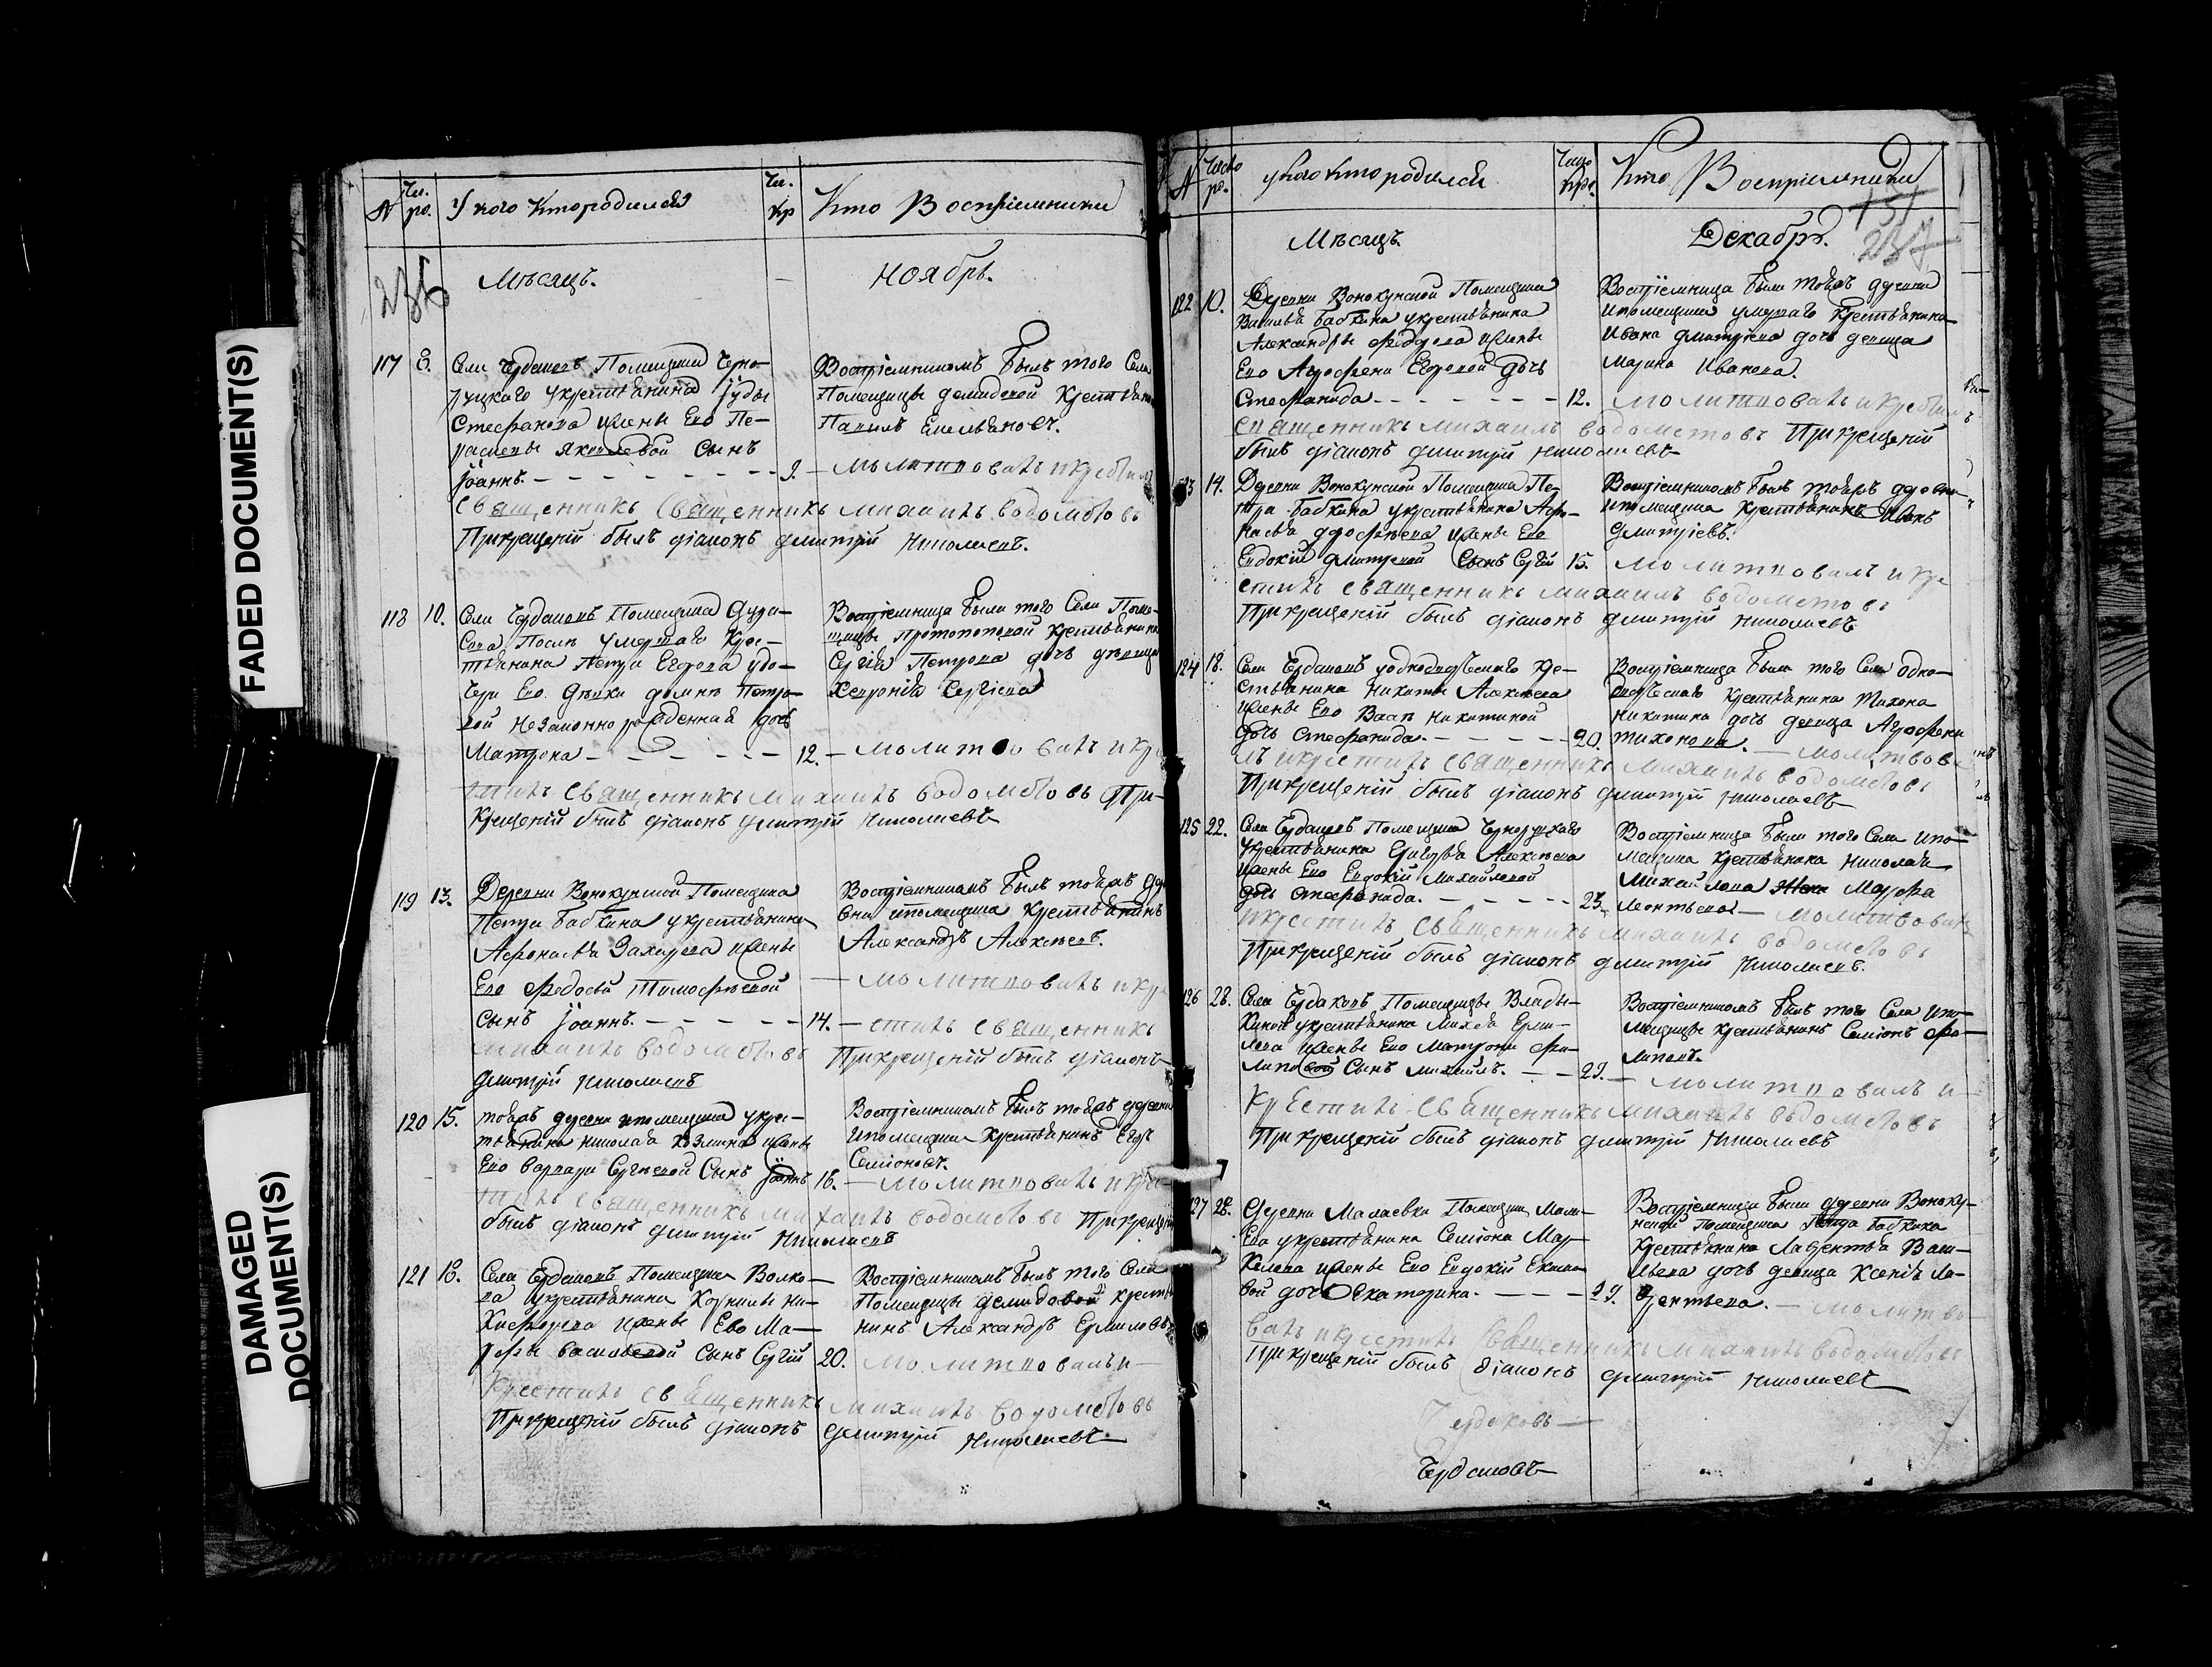 FADED DOCUMENT(S)
DAMAGED
DOCUMENT(S)
№ Чи. ро. У кого кто родился Чи. кр Кто Воспріемники
236 Мѣсяцъ. — Ноябрь.
117 8. Села Чердаковъ Помещика Черно-
руцкаго укрестьянина Іуды
Стефанова ижены Ево Пе-
раскевы Яковлевой Сынъ
Іоаннъ. — 9.
Воспріемникомъ былъ того Села
Помещицы Демидовой Крестьян
Павилъ Емельяновъ.
— молитвовалъ икрестил
священникъ священникъ михаилъ водомѣтовъ
Прикрещеніи былъ діаконъ дмитрій Николаевъ.
118 10. Села Чердаковъ Помещика Дура-
сова Послѣ умершаго Кре-
стьянина Петра Егорова удо-
чери Ево девки домны Петро-
вой Незаконно рожденная дочь
Матрона — 12.
Воспріемница была того Села Поме-
щицы Протопоповой Крестьянина
Сергѣя Петрова дочь девица
Хевронія Сергіева
— молитвовалъ икре
стилъ священникъ михаилъ водомѣтовъ При-
Крещеніи былъ діаконъ дмитрій Николаевъ
119 13. Деревни Вонокунской Помещика
Петра Бабкина укрестьянина
Афонасья Захарова ижены
Ево Федосьи Тимофеевой
сынъ Іоаннъ. — 14.
Воспріемникомъ былъ тояжъ Дере
вни ипомещика Крестьянинъ
Александръ Алексѣевъ.
— молитвовалъ икре
— стилъ священникъ
михаилъ водомѣтовъ Прикрещеніи былъ діаконъ
дмитрій Николаевъ
120 15. тояжъ деревни ипомещика укре-
стьянина Николая Козмина ижены
Ево варвары Сергѣевой Сынъ Іоаннъ 16.
Воспріемникомъ былъ тояжъ деревни
ипомещика Крестьянинъ Егоръ
Семіоновъ.
— молитвовалъ икре-
стилъ священникъ михаилъ водомѣтовъ Прикрещеніи
былъ діаконъ дмитрій Николаевъ
121 18. Села Чердаковъ Помещика Волко-
ва укрестьянина Корнилы Ни-
Кифорова ижены Ево Ма-
рфы васильевой сынъ Сергій 20.
Воспріемникомъ былъ того Села
Помещицы демидовой кресть
нинъ Александръ Ермиловъ
молитвовалъ и —
Крестилъ священникъ михаилъ водомѣтовъ
Прикрещеніи былъ діаконъ дмитрій Николаевъ
№ Число ро. у кого кто родился Число кре. Кто Воспріемники
151
237
Мѣсяцъ. Декабрь.
122 10. Деревни Вонокунской Помещика
Василья бабкина укрестьянина
Александры Федорова ижены
Ево Агрофены Егоровой дочь
Стефанида — 12.
Воспріемница была тояжъ деревни
ипомещика умершаго Крестьянина
Ивана дмитріева дочь девица
Марина Иванова.
молитвовалъ икрестил
священникъ михаилъ водометовъ Прикрещеніи
былъ діаконъ дмитрій николаевъ
14. Деревни Вонокунской Помещика Пе-
тра бабкина укрестьянина Афо-
насья дорофѣева ижены Ево
Евдокіи дмитревой Сынъ Сергій 15.
Воспріемникомъ былъ тояжъ деревни
ипомещика Крестьянинъ Иванъ
Дмитріевъ.
молитвовалъ икре
стилъ священникъ михаилъ водометовъ
Прикрещеніи былъ діаконъ дмитрій николаевъ
124 18. Села Чердаковъ уоднодворческаго Кре-
стьянина Никиты Алексѣева
ижены Ево Васы Никитиной
дочь стефанида. — 20.
Воспріемница была того Села одно-
дворческаго Крестьянина Тихона
Никитина дочь девица Агрофена
тихонова. — молитвова
лъ икрестилъ священникъ михаилъ водомѣтовъ
Прикрещеніи былъ діаконъ дмитрій Николаевъ
125 22. Села Чердаковъ Помещика Черноруцкаго
Укрестьянина Григорья Алексѣева
ижены Ево Евдокіи Михайловой
дочь стефанида. — 23.
Воспріемница была того Села ипо-
мещика крестьянина Николая
Михайлова жена Марфа
Леонтьева — молитвовалъ
икрестилъ священникъ михаилъ водомѣтовъ
Прикрещеніи былъ діаконъ дмитрій Николаевъ.
126 28. Села Чердаковъ Помещицы Влады-
Киной укрестьянина Михея Ерми-
лова ижены Ево Матроны Фи-
липовой Сынъ Михаилъ. — 29.
Воспріемникомъ былъ того Села ипо-
мещицы крестьянинъ Семіонъ Фи-
липовъ.
— молитвовалъ и —
Крестилъ священникъ михаилъ водомѣтовъ
Прикрещеніи былъ діаконъ дмитрій Николаевъ
127 28. Деревни Малаевки Помещика Мала-
Ева укрестьянина Семіона Мар-
Келова ижены Ево Евдокіи
вой дочь Екатерина. — 29.
Воспріемница была деревни Воноку-
нской Помещика Петра бабкина
Крестьянина Лаврентья Васи-
льева дочь девица Ксенія Ла-
врентьева. — молитво-
валъ икрестилъ священникъ михаилъ водомѣтовъ
Прикрещеніи былъ діаконъ дмитрій николаевъ
Чердаковъ —
Чердаковъ